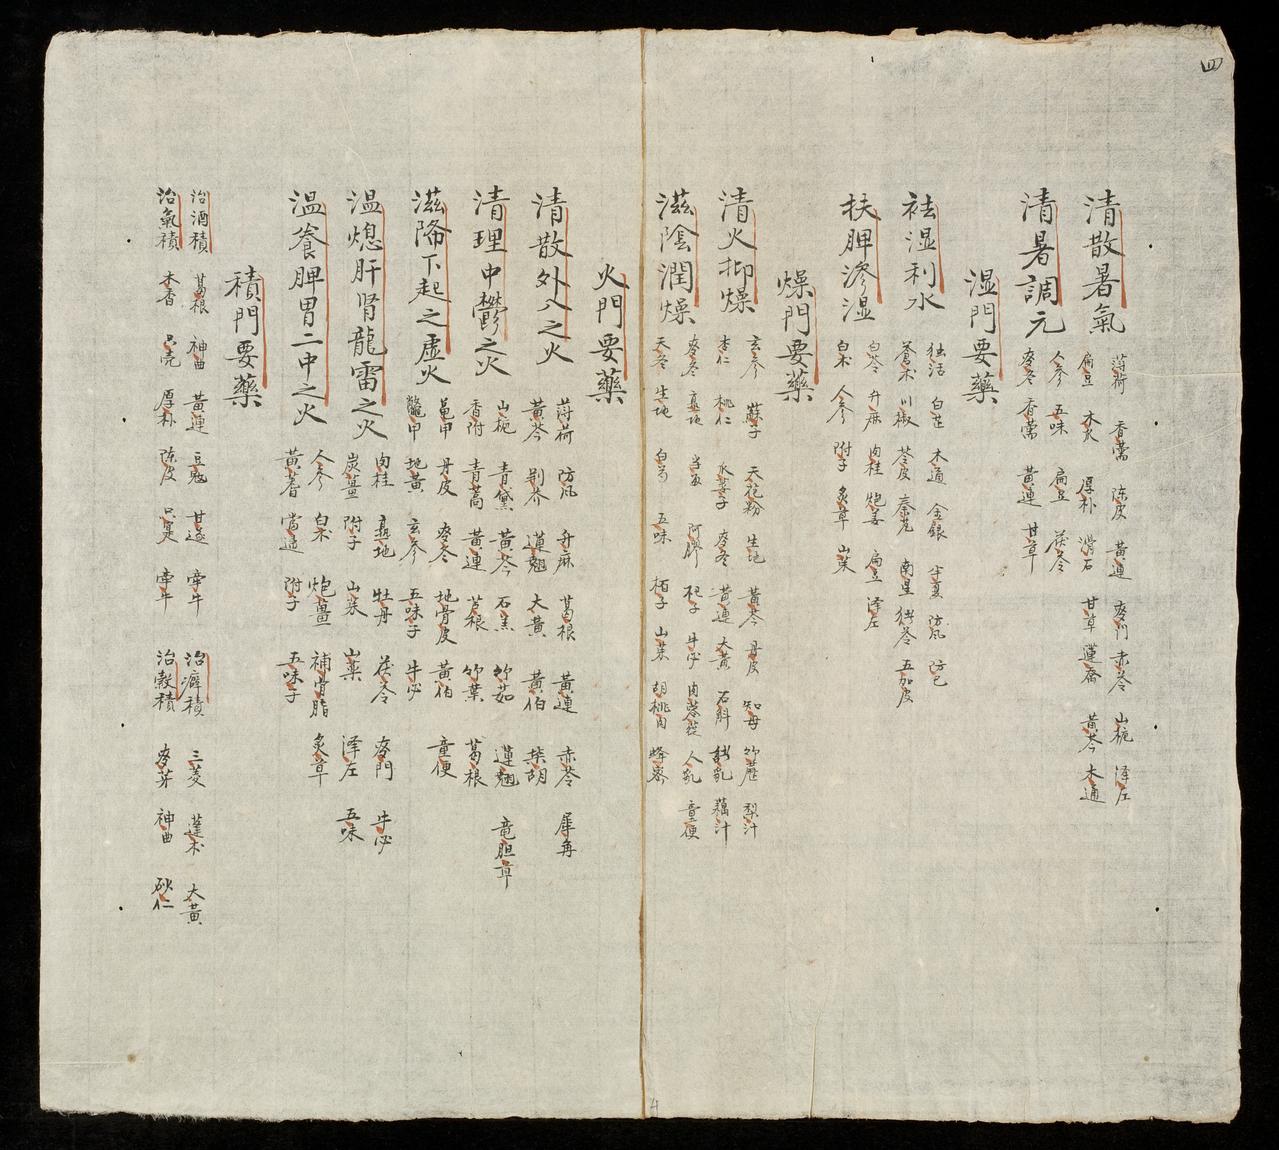 四
清散暑氣
薄荷 香薷 陈皮 黃連 麦门 赤苓 山梔 泽左
扁豆 木瓜 厚朴 滑石 甘草 蓮 黃芩 木通
清暑調元
人参 五味 扁豆 茯苓
麦冬 香薷 黃連 甘草
湿門要藥
袪湿利水
独活 白芷 木通 金銀 半夏 防风 防已
蒼术 川椒 苓皮 秦艽 南星 猪苓 五加皮
扶脾滲湿
白苓 升麻 肉桂 炮姜 扁豆 泽左
白术 人参 附子 炙草 山茱
燥門要藥
清火抑燥
玄参 蘇子 天花粉 生地 黃芩 丹皮 知母 竹瀝 梨汁
杏仁 桃仁 麦冬 黃連 大黃 石斛 乳 藕汁
滋陰潤燥
麦冬 熟地 当归 阿膠 杞子 牛必 肉蓉 人乳 童便
天冬 生地 白芍 五味 栢子 山茱 胡桃肉 蜂蜜
火門要藥
清散外入之火
薄荷 防风 升麻 葛根 黃連 赤苓 犀角
黃芩 荆芥 蓮翹 大黃 黃伯 柴胡
清理中鬱之火
山栀 青黛 黃芩 石羔 竹茹 蓮翹 竜胆草
香附 青蒿 黃連 芦根 竹葉 葛根
滋降下起之虛火
黾甲 丹皮 麦冬 地骨皮 黃伯 童便
鱉甲 地黃 玄参 五味子 牛必
温熄肝肾龍雷之火
肉桂 熟地 牡丹 茯苓 麦門 牛必
炭薑 附子 山茱 山藥 泽左 五味
温養脾胃二中之火
人参 白术 炮薑 補骨脂 炙草
黃耆 當归 附子 五味子
積門要藥
治酒積 葛根 神曲 黃連 豆蔻 甘遂 牽牛 治癖積 三菱 蓬术 大黃
治氣積 木香 只壳 厚朴 陈皮 只实 牽牛 治穀積 麦芽 神曲 砂仁
4